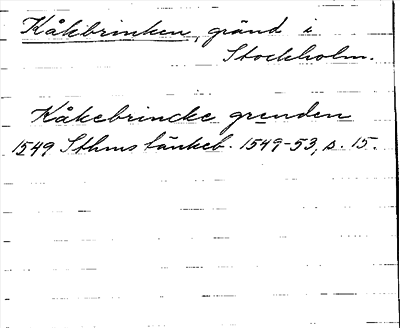 Kåkbrinken, gränd i
Stockholm.
Kåkebrincke grenden
1549 Sthms tänkeb. 1549-53, s. 15.